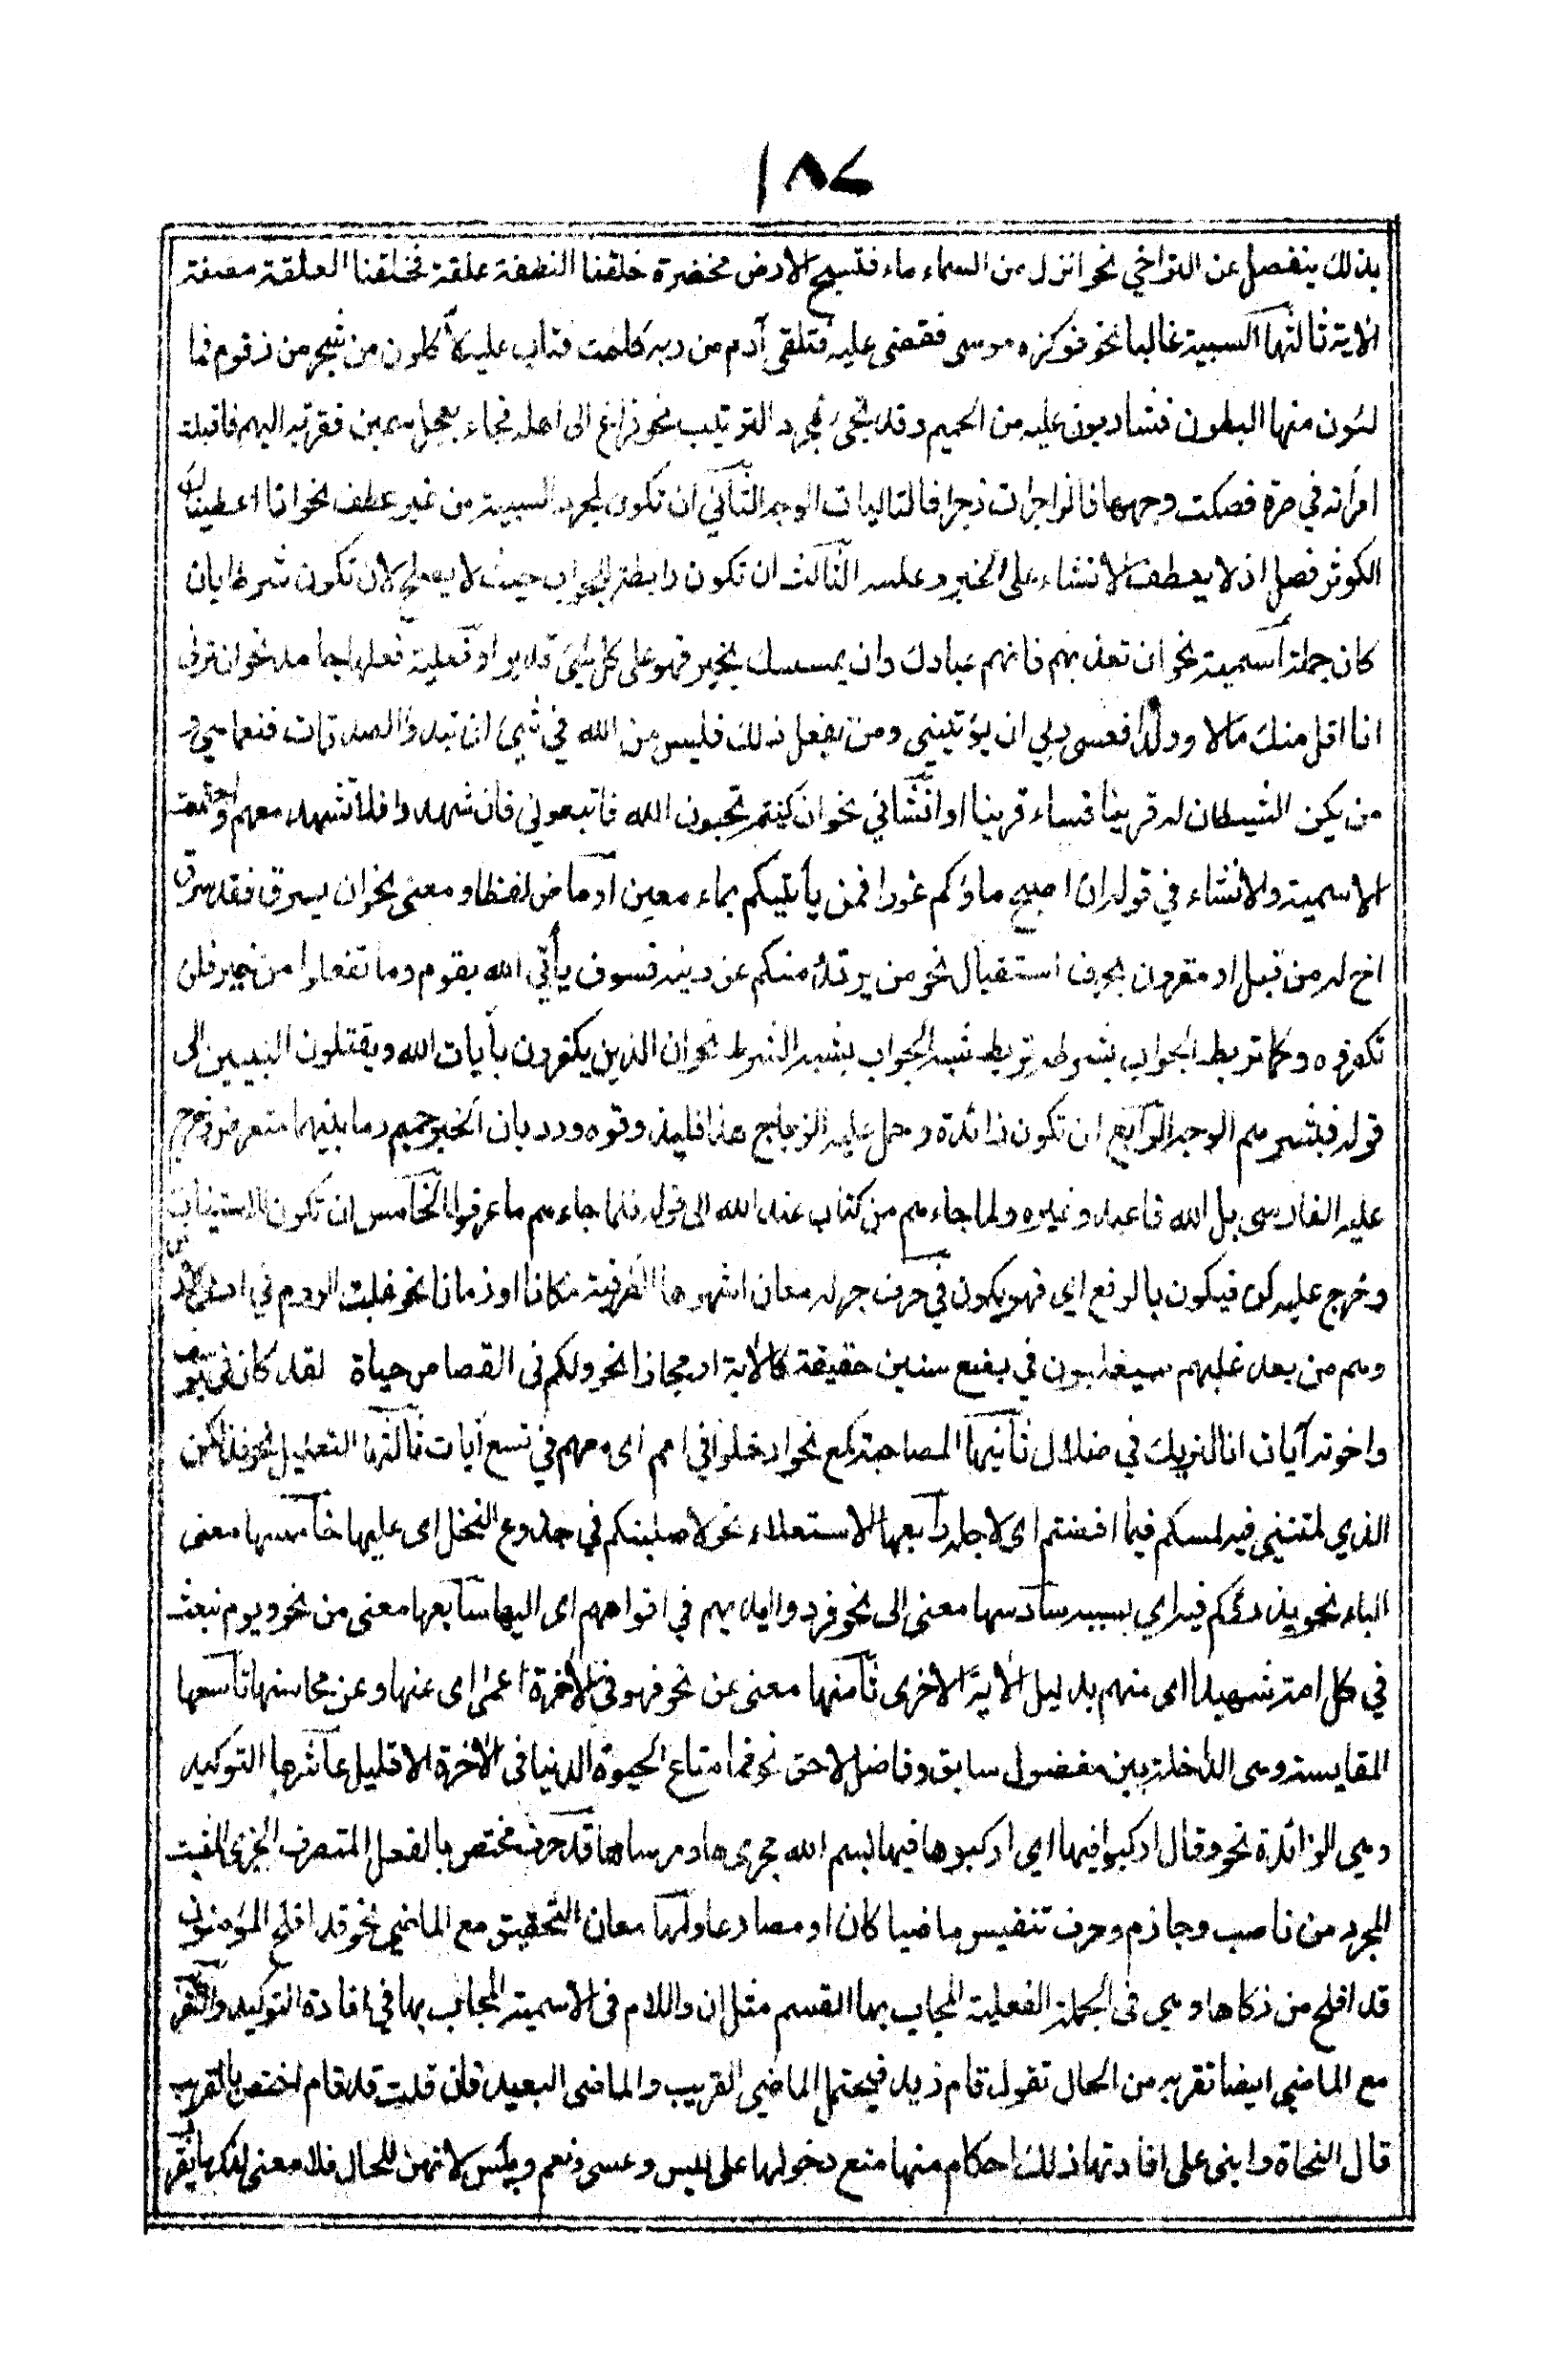 ١٨٤
بذلك ينفصل عن التراخي نحو انزل من السماء ماء فتصبح الارض مخضرة خلقنا النطفة علقة فخلقنا العلقة مضغة
الاية ثالثها السببية غالبا نحو فوكزه موسى فقضى عليه فتلقى آدم من ربه كلمت فتاب عليه لأكلون من شجر من زقوم فما
لئون منها البطون فشاربون عليه من الحميم وقد تجيء لمجرد الترتيب نحو فراغ الى اهله فجاء بعجل سمين فقربه اليهم فاقبلت
امرأته في صرة فصكت وجهها فالزاجرات زجرا فالتاليات الوجه الثاني ان تكون لمجرد السببية من غير عطف نحو انا اعطيناك
الكوثر فصل اذ لا يعطف الانشاء على الخبر وعكسه الثالث ان تكون رابطة للجواب حيث لا يصلح لان تكون شرطا بان
كان جملة اسمية نحو ان تعذبهم فانهم عبادك وان يمسسك بخير فهو على كل شئ قدير او فعلية فعلها جامد نحو ان ترن
انا اقل منك مالا وولدا فعسى ربي ان يؤتيني ومن يفعل ذلك فليس من الله في شئ ان تبدوا الصدقات فنعما هي و
من يكن الشيطان له قرينا فساء قرينا او انشائي نحو ان كنتم تحبون الله فاتبعوني فان شهدوا فلا تشهد معهم واجتمعت
الاسمية والانشاء في قوله ان اصبح ماؤكم غورا فمن يأتيكم بماء معين او ماض لفظا ومعنى نحو ان يسرق فقد سرق
اخ له من قبل او مقرون بحرف استقبال نحو من يرتد منكم عن دينه فسوف يأتي الله بقوم وما تفعلوا من خير فلن
تكفروه وكما تربط الجواب بشرطه تربط شبه الجواب بشبه الشرط نحو ان الذين يكفرون بآيات الله ويقتلون النبيين الى
قوله فبشرهم الوجه الرابع ان تكون زائدة وحمل عليه الزجاج هذا فليذوقوه ورد بان الخبر حميم وما بينهما معترض وخرج
عليه الفارسى بل الله فاعبد وغيره ولما جاءهم من كتاب عند الله الى قوله فلما جاءهم ما عرفوا الخامس ان تكون للاستيناف
وخرج عليه كن فيكون بالرفع اى فهو يكون في حرف جر له معان اشهرها الظرفية مكانا او زمانا نحو غلبت الروم في ادنى الارض
وهم من بعد غلبهم سيغلبون في بضع سنين حقيقة كالاية او مجازا نحو ولكم فى القصاص حياة لقد كان فى يوسف
واخوته آيات انا لنريك في ضلال ثانيها المصاحبة كمع نحو ادخلوا في امم اى معهم في تسع آيات ثالثها التعليل نحو فذلكن
الذي لمتنني فيه لمسكم فيما افضتم اى لاجله رابعها الاستعلاء نحو لاصلبنكم في جذوع النخل اى عليها خامسها معنى
الباء نحو يذرؤكم فيه اي بسببه سادسها معنى الى نحو فردوا ايديهم في افواههم اى اليها سابعها معنى من نحو ويوم نبعث
في كل امة شهيدا اى منهم بدليل الآية الاخرى ثامنها معنى عن نحو فهو في الآخرة اعمى اى عنها وعن محاسنها تاسعها
المقايسة وهى الداخلة بين مفضول سابق وفاضل لاحق نحو فما متاع الحيوة الدنيا فى الآخرة الا قليل عاشرها التوكيد
وهي الزائدة نحو وقال اركبوا فيها اي اركبوها فيها بسم الله مجرىها ومرساها قد حرف مختص بالفعل المتصرف الخبرى المثبت
المجرد من ناصب وجازم وحرف تنفيس ماضيا كان او مضارعا ولها معان التحقيق مع الماضي نحو قد افلح المؤمنون
قد افلح من زكاها وهي فى الجملة الفعلية المجاب بها القسم مثل ان واللام فى الاسمية المجاب بها في افادة التوكيد والتقريب
مع الماضي ايضا تقربه من الحال تقول قام زيد فيحتمل الماضي القريب والماضى البعيد فان قلت قد قام اختص بالقريب
قال النحاة وابنى على افادتها ذلك احكام منها منع دخولها على ليس وعسى ونعم وبئس لانهن للحال فلا معنى لذكر ما يقرب